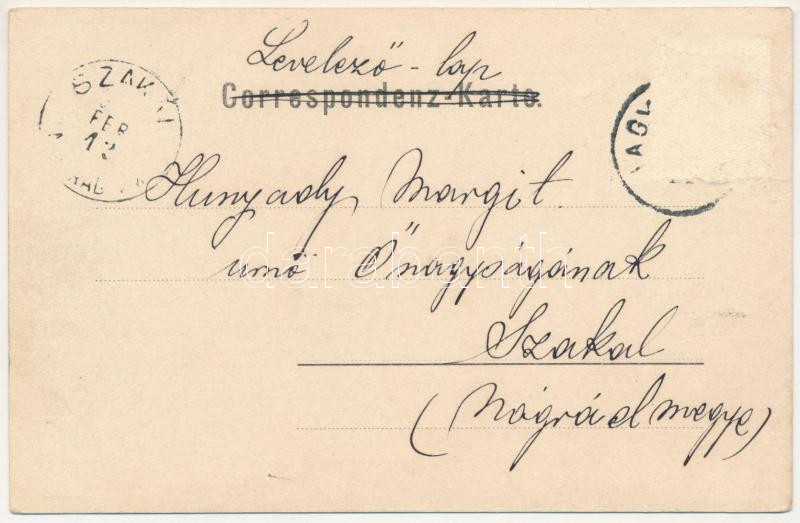 Levelező-lap
Correspondenz-Karte.
SZAK
FEB
12
Hunyady Margit
urnő Őnagyságának
Szakal
(Nógrád megye)
darabanth